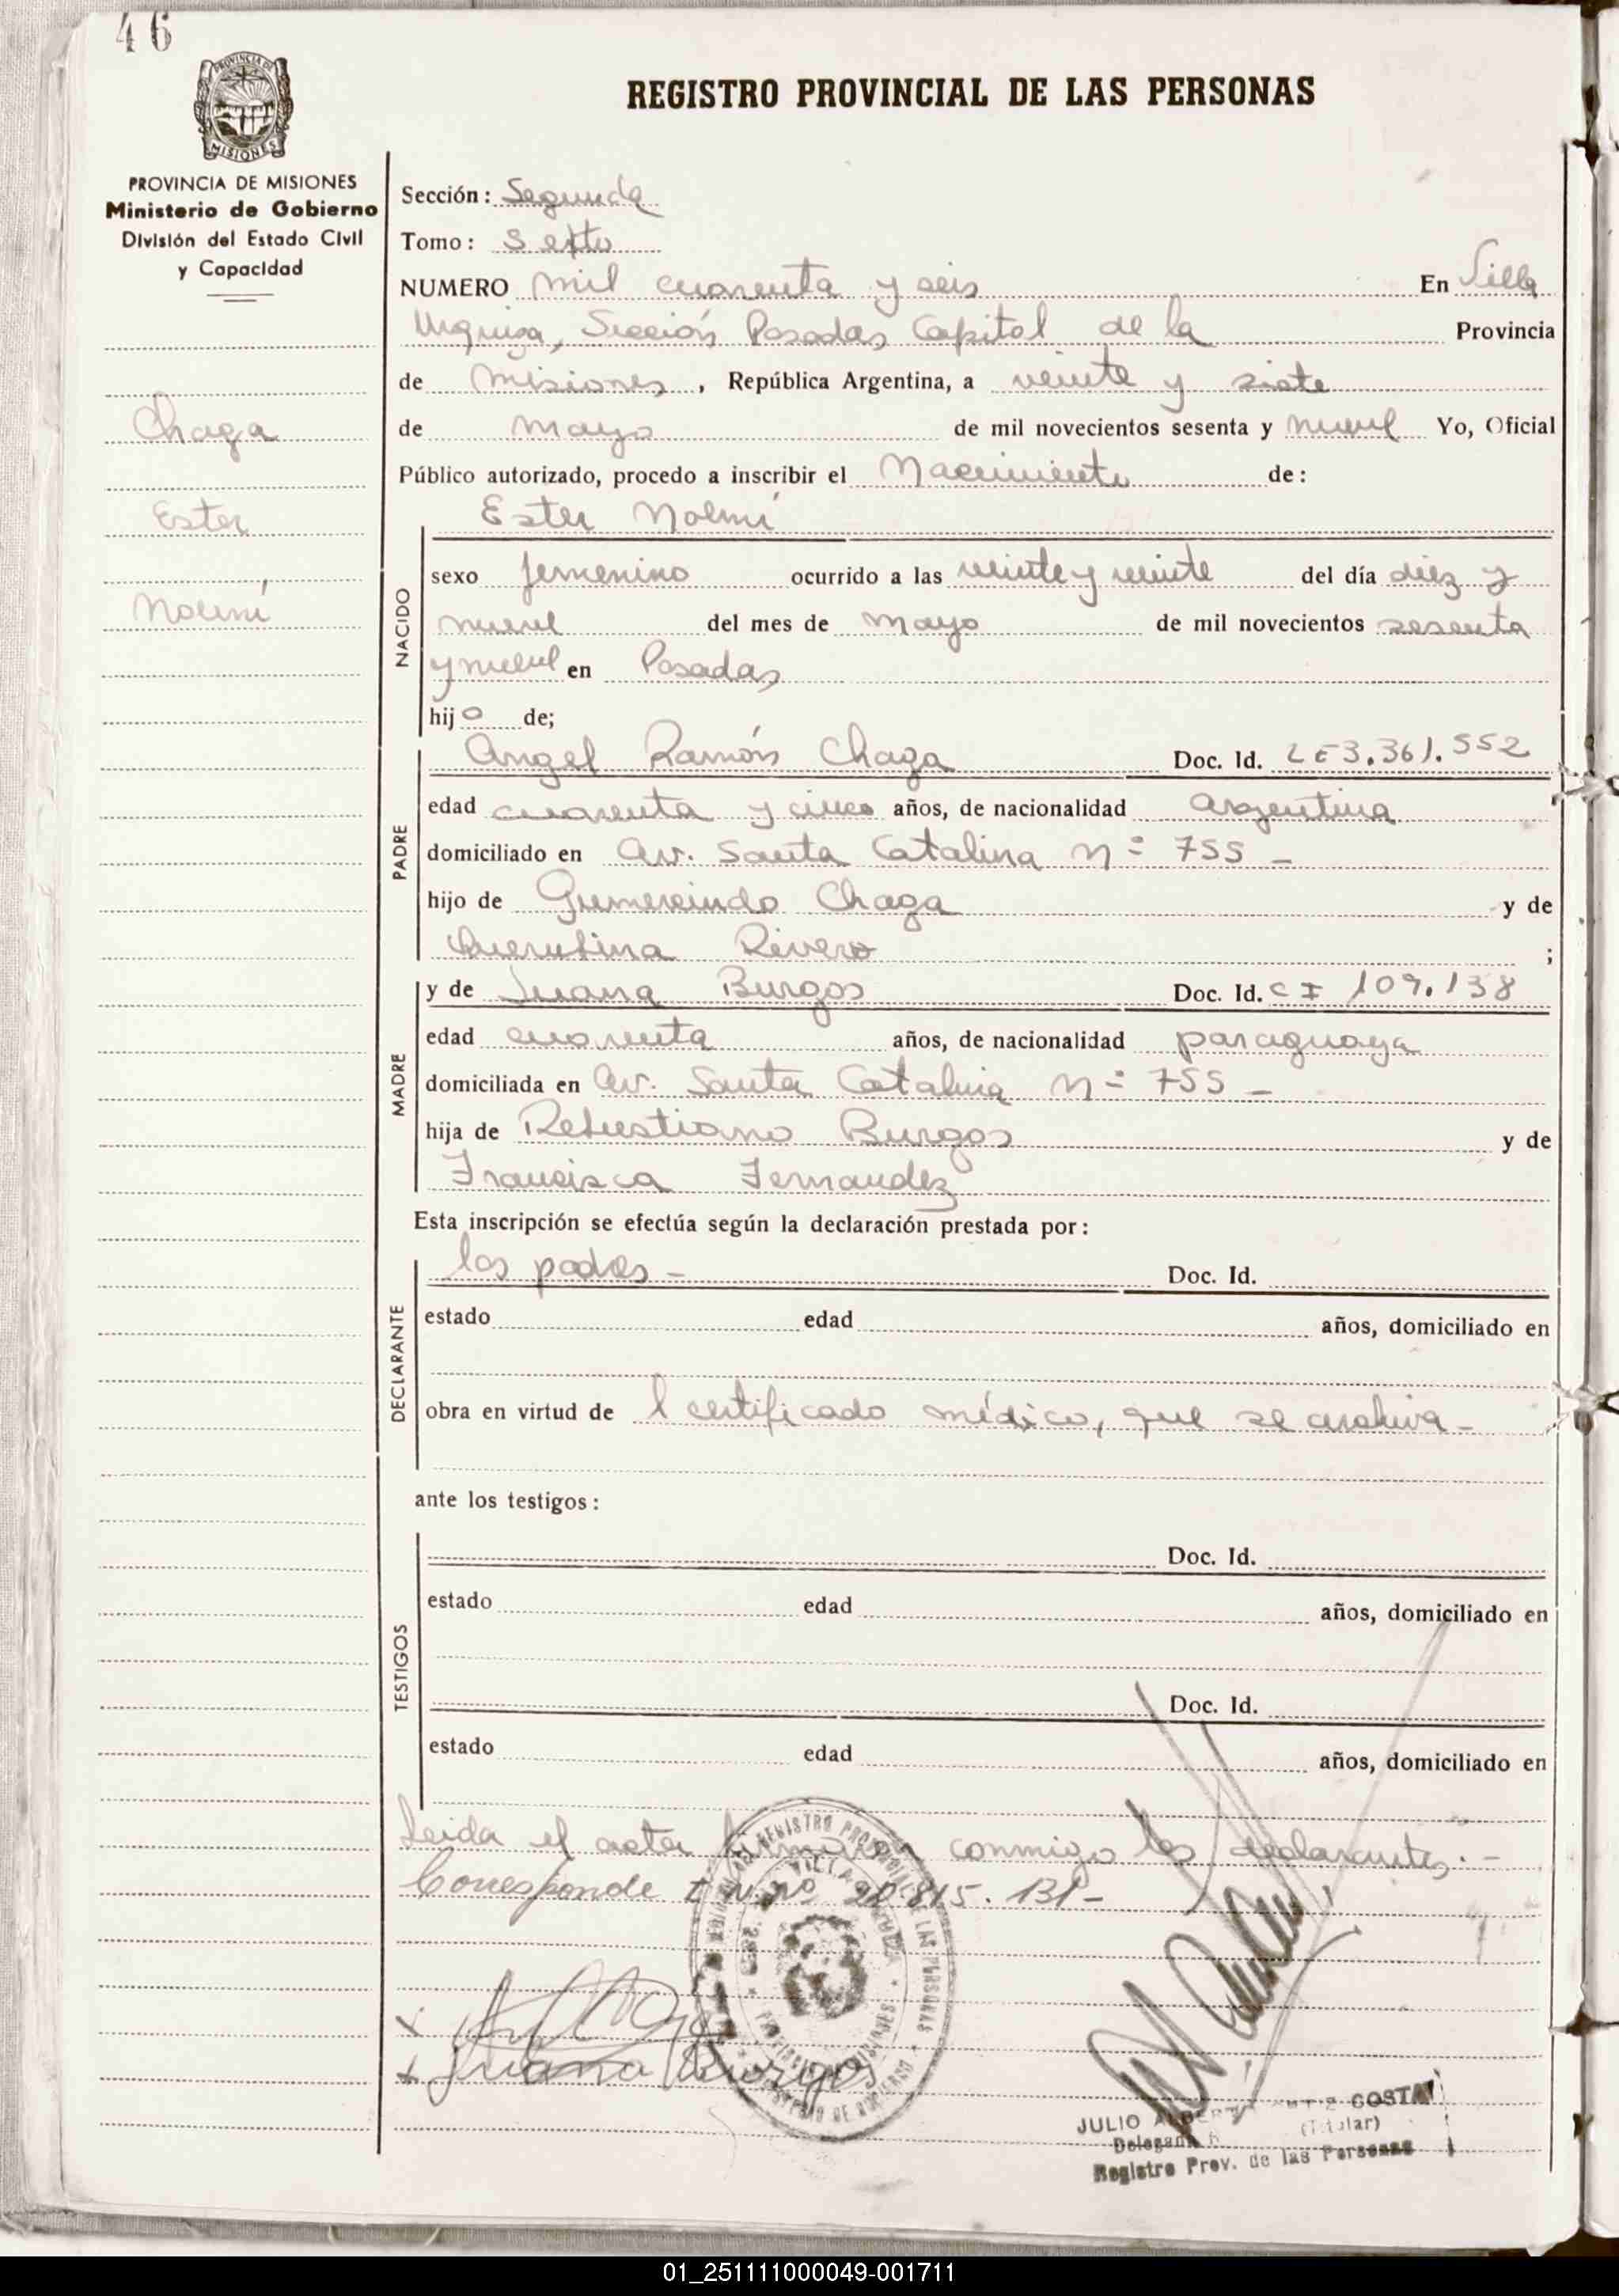 46
PROVINCIA DE MISIONES
REGISTRO PROVINCIAL DE LAS PERSONAS
PROVINCIA DE MISIONES
Ministerio de Gobierno
División del Estado Civil
y Capacidad
Chaga
Ester
Noemí
Sección: Segunda
Tomo: Sexto
NUMERO mil cuarenta y seis En Villa
Urquiza, Sección Posadas Capital de la Provincia
de Misiones, República Argentina, a veinte y siete
de mayo de mil novecientos sesenta y nueve Yo, Oficial
Público autorizado, procedo a inscribir el Nacimiento de:
Ester Noemí
NACIDO
sexo femenino ocurrido a las veinte y veinte del día diez y
nueve del mes de mayo de mil novecientos sesenta
y nueve en Posadas
hijo de;
PADRE
Angel Ramón Chaga Doc. Id. LE3.361.552
edad cuarenta y cinco años, de nacionalidad argentina
domiciliado en Av. Santa Catalina Nº 755 -
hijo de Gumercindo Chaga y de
Querubina Rivero ;
MADRE
y de Juana Burgos Doc. Id. CI 109.138
edad cuarenta años, de nacionalidad paraguaya
domiciliada en Av. Santa Catalina Nº 755 -
hija de Burgos y de
Francisca Fernandez
Esta inscripción se efectúa según la declaración prestada por:
DECLARANTE
los padres - Doc. Id.
estado edad años, domiciliado en
obra en virtud de l certificado médico, que se archiva -
ante los testigos:
TESTIGOS
Doc. Id.
estado edad años, domiciliado en
Doc. Id.
estado edad años, domiciliado en
Leida el acta firman conmigo los declarantes. -
Corresponde 815. 131 -
Juana Burgos
JULIO COSTA
(Titular)
Registro Prov. de las Personas
01_251111000049-001711